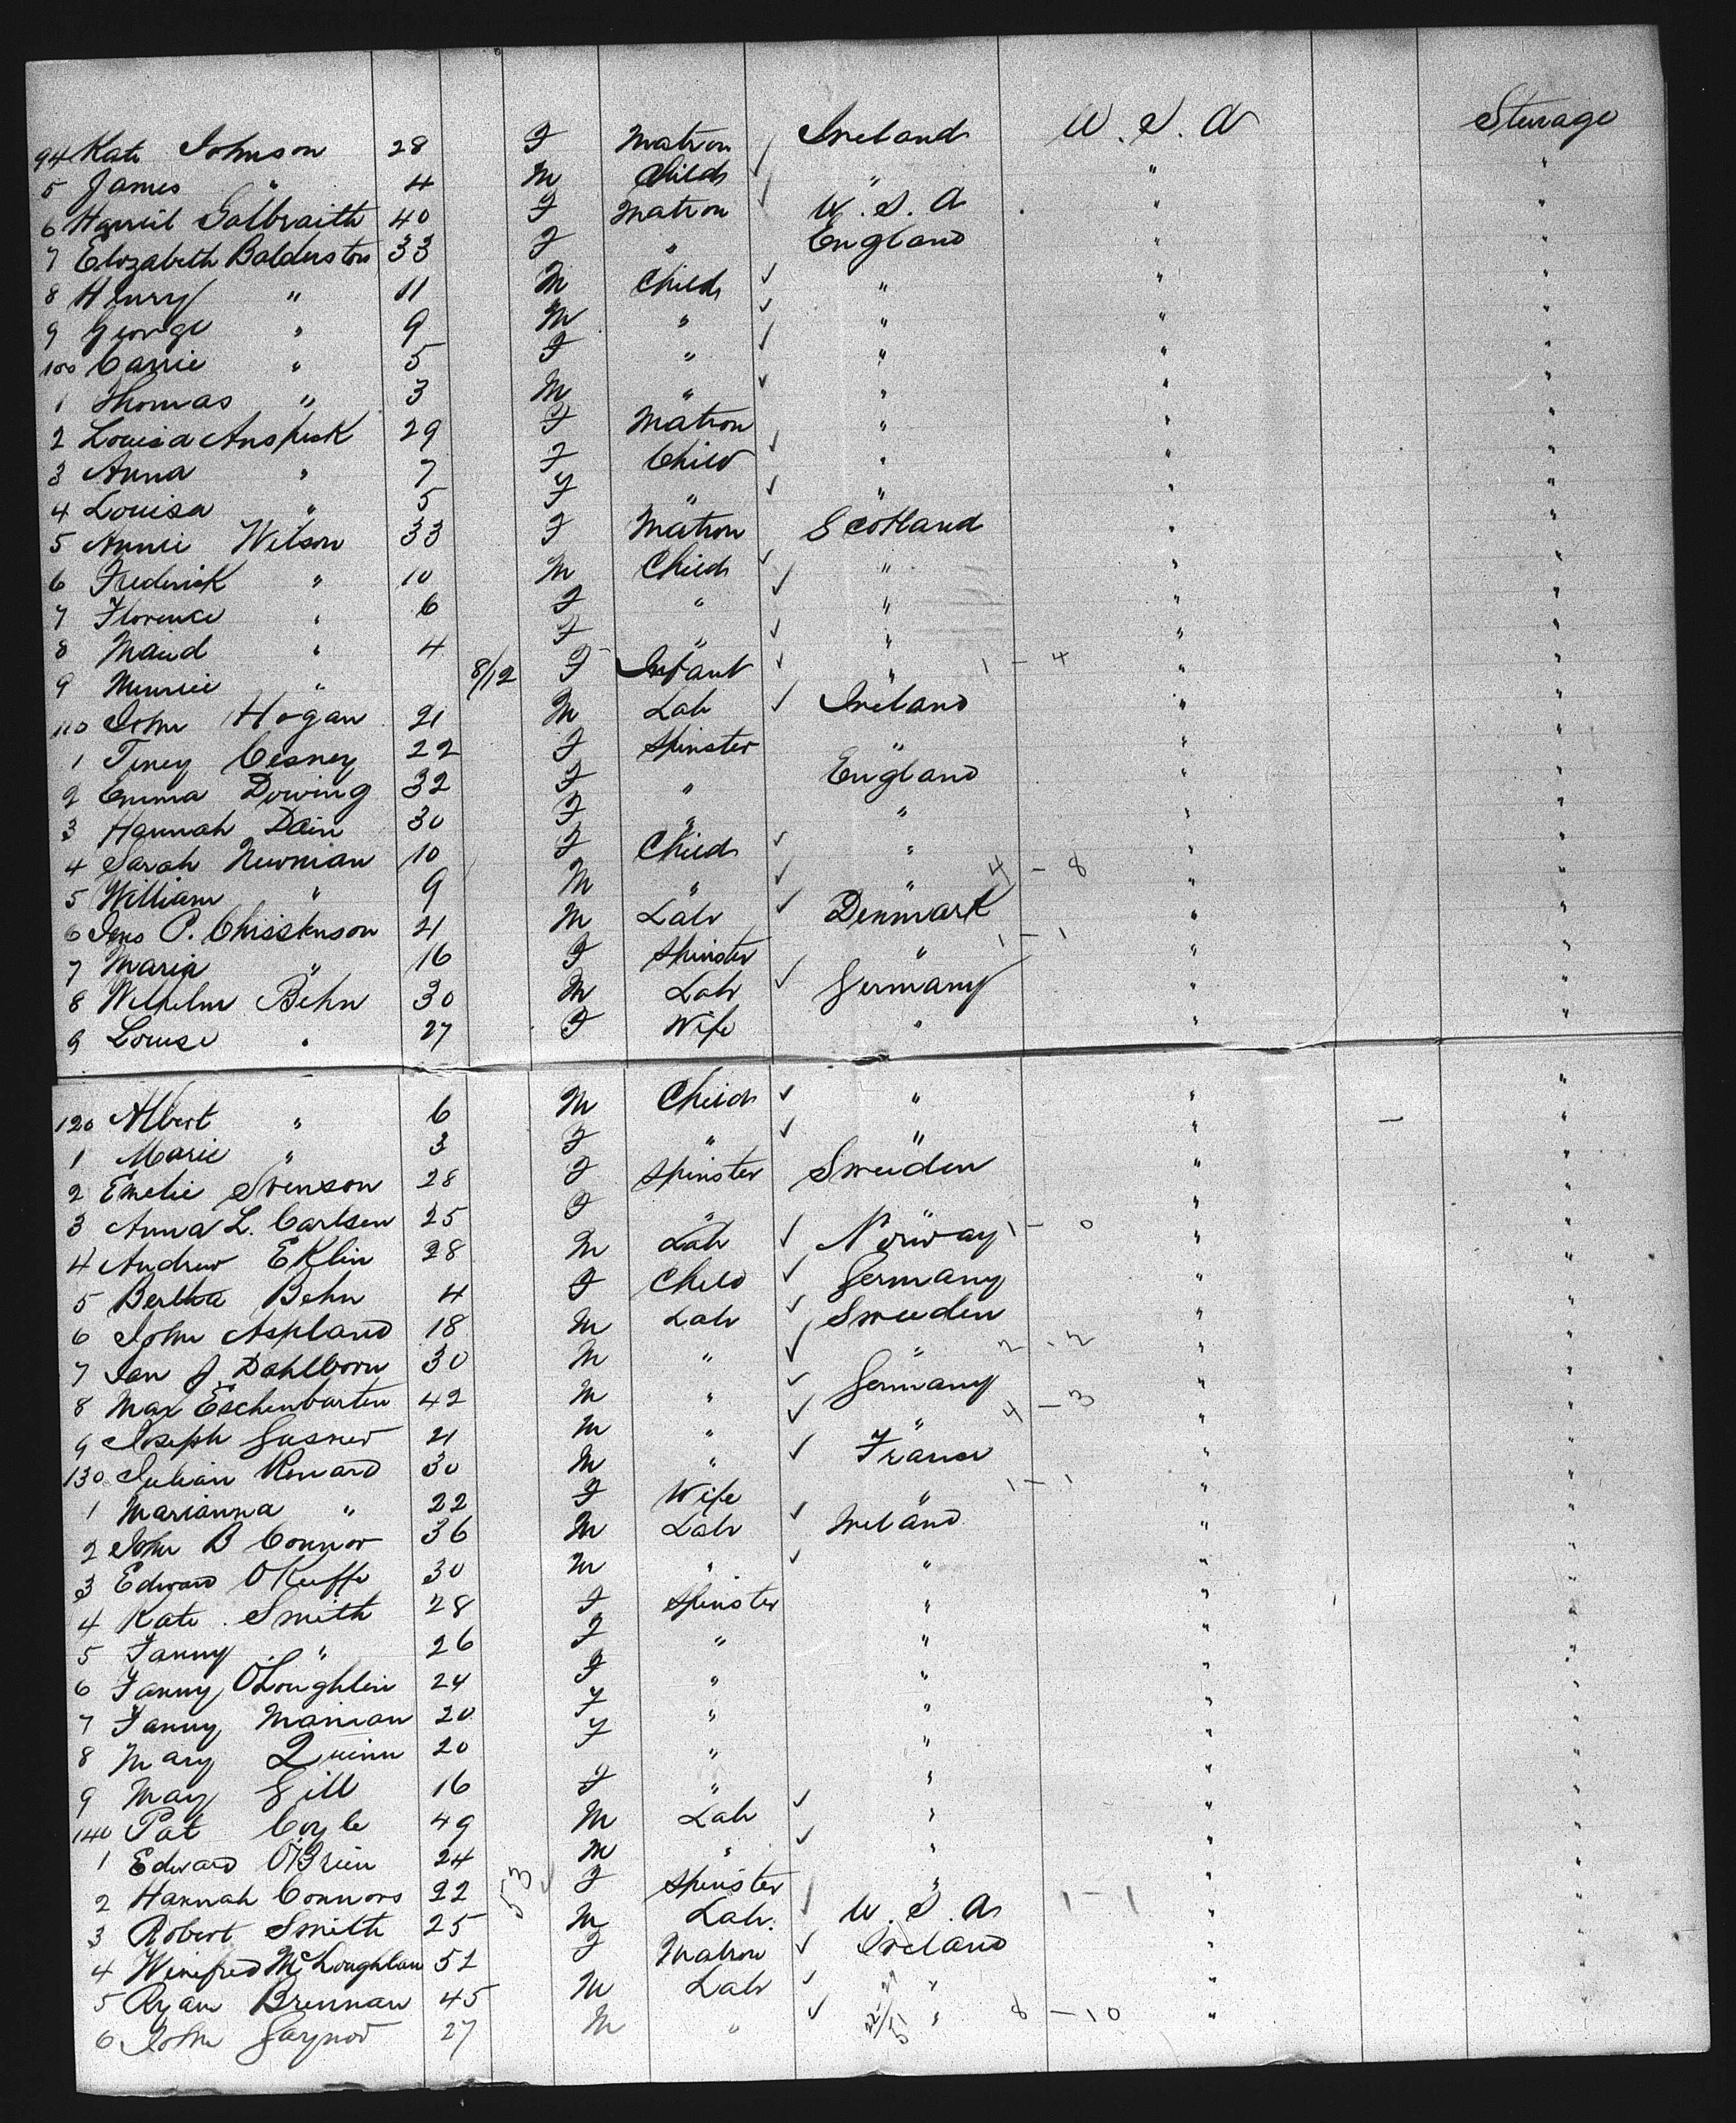 94 Kate Johnson 28 F Matron ✓ Ireland U.S.A Sturage
5 James " 4 M Child ✓ " " "
6 Harriet Galbraith 40 F Matron ✓ U.S.A " "
7 Elizabeth Balderston 33 F " England " "
8 Henry " 11 M Child ✓ " " "
9 George " 9 M " ✓ " " "
100 Carrie " 5 F " ✓ " " "
1 Thomas " 3 M " ✓ " " "
2 Louisa Anspeck 29 F Matron " " "
3 Anna " 7 F Child ✓ " " "
4 Louisa " 5 F " ✓ " " "
5 Annie Wilson 33 F Matron Scotland " "
6 Frederick " 10 M Child ✓ " " "
7 Florence " 6 F " ✓ " " "
8 Maud " 4 F " ✓ " " "
9 Minnie " 8/12 F Infant ✓ " 1 - 4 " "
110 John Hogan 21 M Lab ✓ Ireland " "
1 Cesney 22 F Spinster " " "
2 Emma Dowing 32 F " England " "
3 Hannah Dain 30 F " " " "
4 Sarah Newman 10 F Child ✓ " " "
5 William " 9 M " ✓ " 4 - 8 " "
6 Jens P. Chisstenson 21 M Lab ✓ Denmark " "
7 Maria " 16 F Spinster " 1 - 1 " "
8 Wilhelm Behn 30 M Lab ✓ Germany " "
9 Louise " 27 F Wife " " "
120 Albert " 6 M Child ✓ " " "
1 Marie " 3 F " ✓ " " "
2 Emelie Svenson 28 F Spinster Sweeden " "
3 Anna L. Carlsen 25 F " " 1 - 0 " "
4 Andrew Eklin 28 M Lab ✓ Norway " "
5 Bertha Behn 4 F Child ✓ Germany " "
6 John Aspland 18 M Lab ✓ Sweeden " "
7 Jan J. Dahlborn 30 M " ✓ " 2 - 2 " "
8 Max Eschenbarten 42 M " ✓ Germany " "
9 Joseph Gusner 21 M " ✓ " 4 - 3 " "
130 Julian Renard 30 M " ✓ France " "
1 Marianna " 22 F Wife " 1 - 1 " "
2 John B Connor 36 M Lab ✓ Ireland " "
3 Edward O'Keeffe 30 M " ✓ " " "
4 Kate Smith 28 F Spinster " " "
5 Fanny " 26 F " " " "
6 Fanny O'Loughlin 24 F " " " "
7 Fanny Manian 20 F " " " "
8 Mary Quinn 20 F " " " "
9 May Gill 16 F " " " "
140 Pat Coyle 49 M Lab ✓ " " "
1 Edward O'Brien 24 M " ✓ " " "
2 Hannah Connors 22 53 ✓ F Spinster " " "
3 Robert Smith 25 M Lab. ✓ U.S.A 1 - 1 " "
4 Winifred McLoughlan 52 F Matron ✓ Ireland " "
5 Ryan Brennan 45 M Lab ✓ " " "
6 John Gaynor 27 M " ✓ " 8 - 10 "